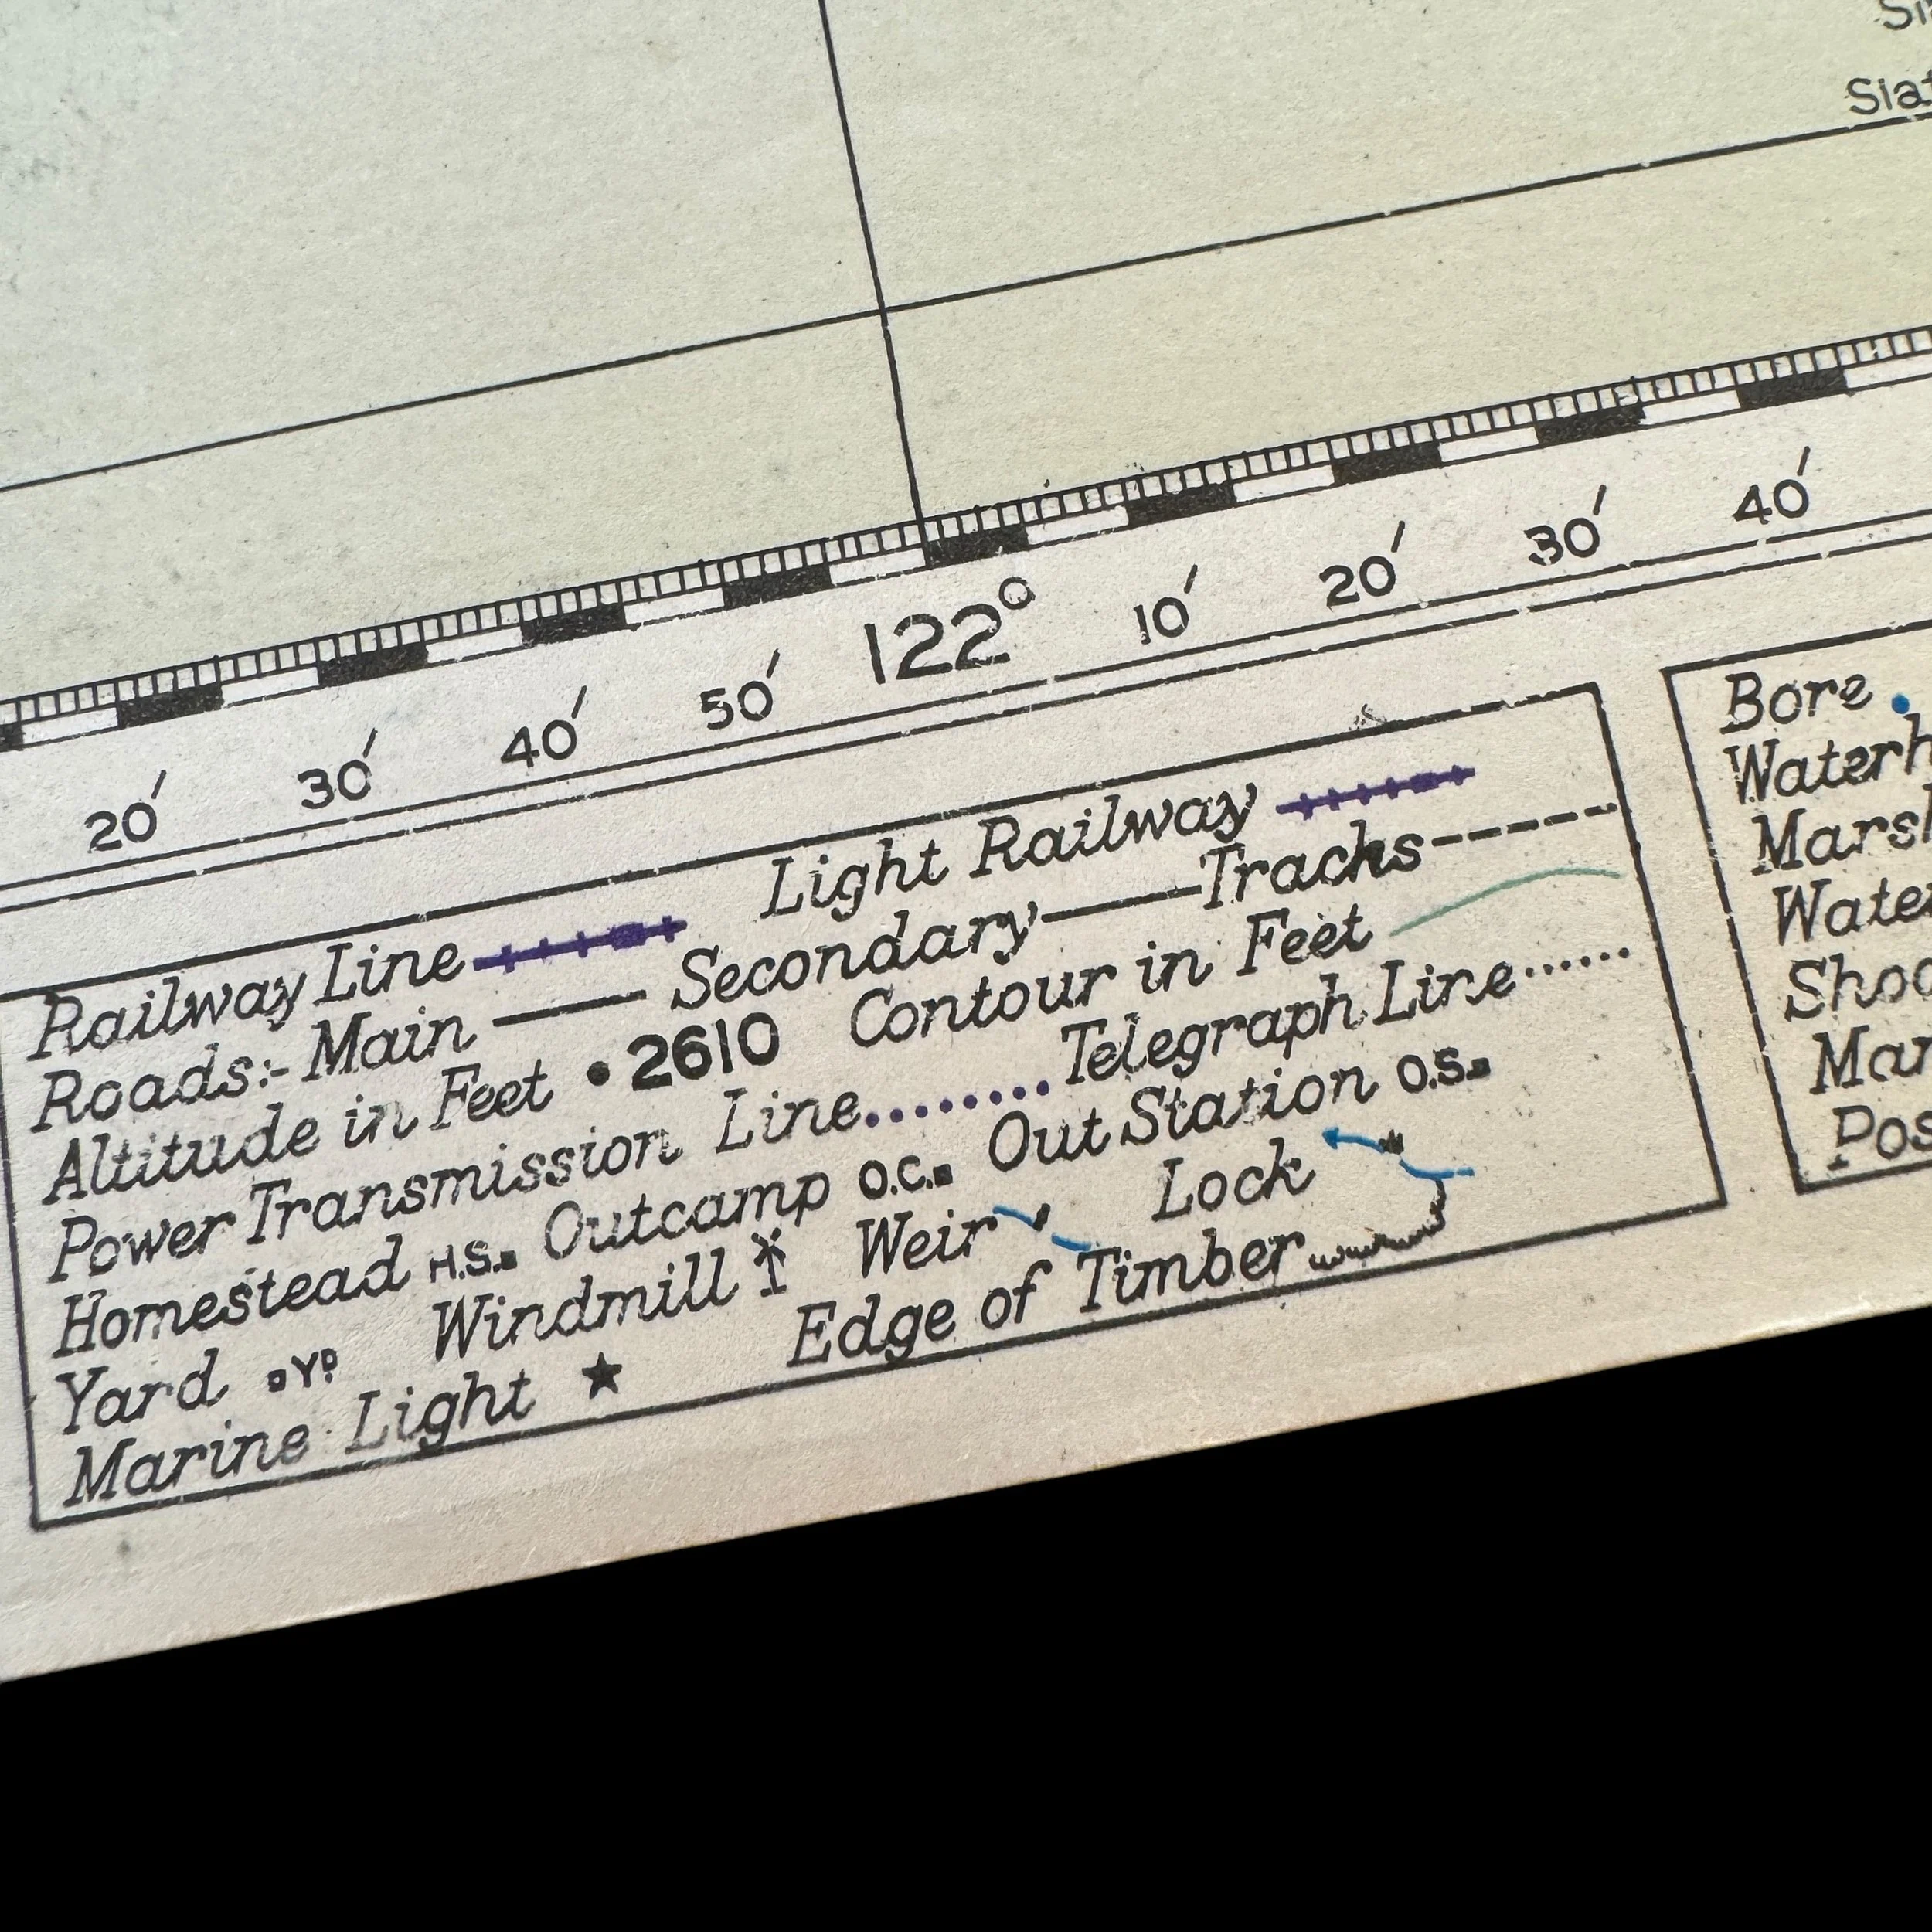 20′ 30′ 40′ 50′ 122° 10′ 20′ 30′ 40′
Railway Line Light Railway
Roads:- Main Secondary Tracks
Altitude in Feet •2610 Contour in Feet
Power Transmission Line......... Telegraph Line......
Homestead H.S. Outcamp O.C. Out Station O.S.
Yard YD Windmill Weir Lock
Marine Light ★ Edge of Timber
Bore